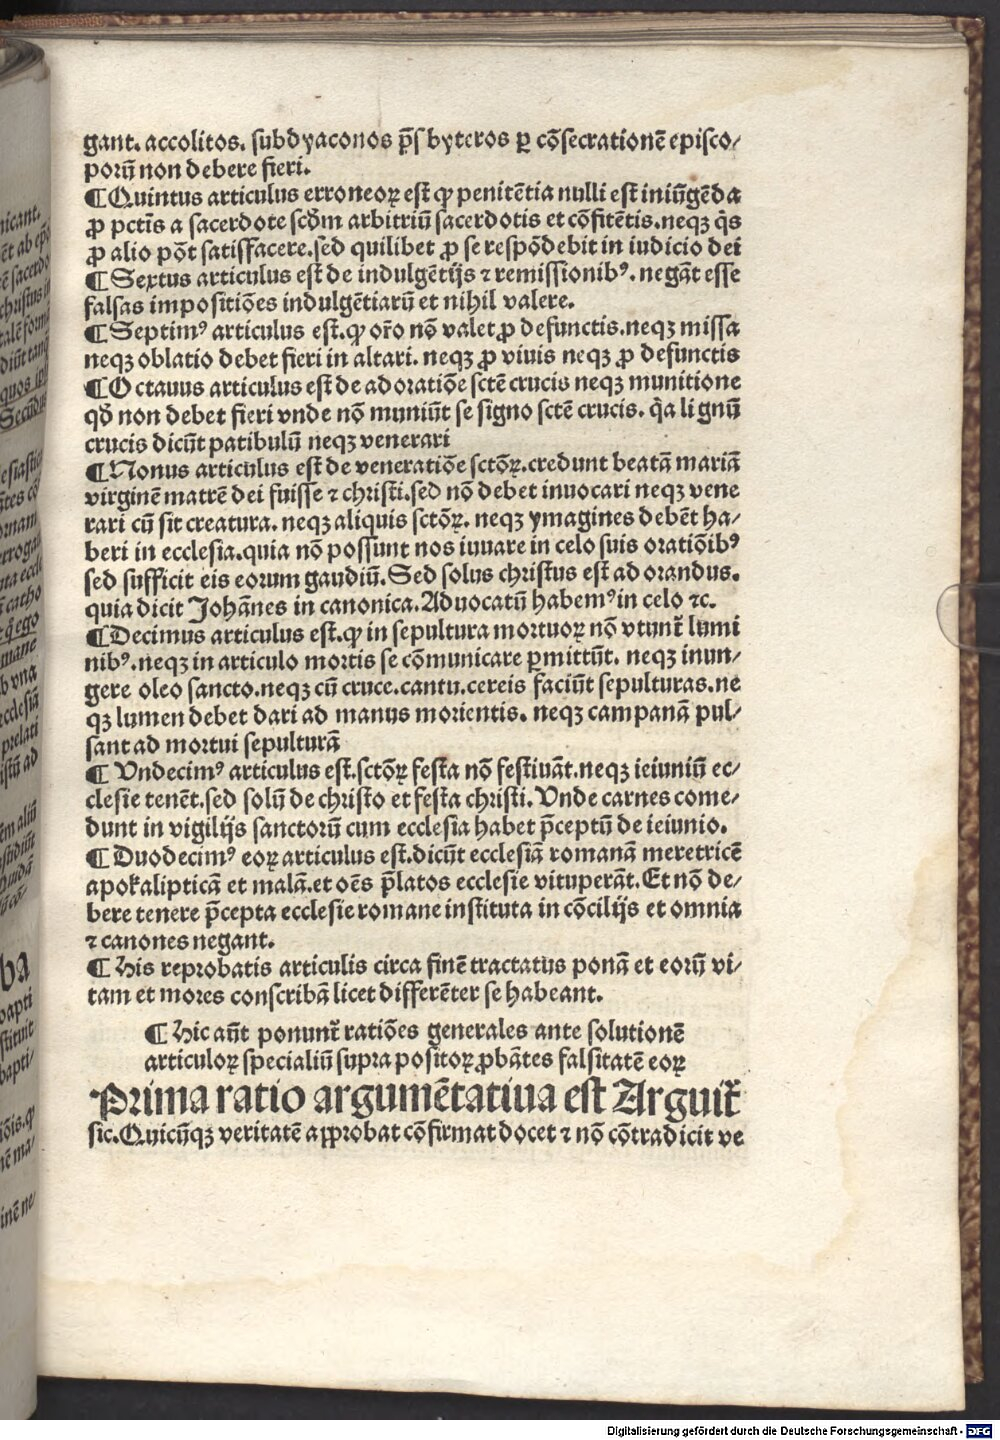 gant. accolitos. subdyaconos p̄sbyteros ꝑ cōsecrationē episco/
porū non debere fieri.
¶Quintus articulus erroneoꝝ est ꝙ penitētia nulli est iniūgēda
ꝓ pctīs a sacerdote scd̄m arbitriū sacerdotis et cōfitētis.neqꝫ q̄s
ꝓ alio pōt satisfacere.sed quilibet ꝓ se respōdebit in iudicio dei
¶Sextus articulus est de indulgētijs ⁊ remissionibꝰ. negāt esse
falsas impositiōes indulgētiarū et nihil valere.
¶Septimꝰ articulus est.ꝙ or̄o nō valet ꝓ defunctis.neqꝫ missa
neqꝫ oblatio debet fieri in altari. neqꝫ ꝓ viuis neqꝫ ꝓ defunctis
¶Octauus articulus est de adoratiōe sctē crucis neqꝫ munitione
qd̄ non debet fieri vnde nō muniūt se signo sctē crucis. q̄a lignū
crucis dicūt patibulū neqꝫ venerari
¶Nonus articulus est de veneratiōe sctōꝝ.credunt beatā mariā
virginē matrē dei fuisse ⁊ christi.sed nō debet inuocari neqꝫ vene
rari cū sit creatura. neqꝫ aliquis sctōꝝ. neqꝫ ymagines debēt ha/
beri in ecclesia.quia nō possunt nos iuuare in celo suis oratiōibꝰ
sed sufficit eis eorum gaudiū.Sed solus christus est adorandus.
quia dicit Johānes in canonica.Aduocatū habemꝰ in celo ⁊c.
¶Decimus articulus est.ꝙ in sepultura mortuoꝝ nō vtunt᷑ lumi
nibꝰ.neqꝫ in articulo mortis se cōmunicare ꝑmittūt. neqꝫ inun/
gere oleo sancto.neqꝫ cū cruce.cantu.cereis faciūt sepulturas.ne
qꝫ lumen debet dari ad manus morientis. neqꝫ campanā pul/
sant ad mortui sepulturā
¶Vndecimꝰ articulus est.sctōꝝ festa nō festiuāt.neqꝫ ieiuniū ec/
clesie tenēt.sed solū de christo et festa christi.Vnde carnes come/
dunt in vigilijs sanctorū cum ecclesia habet p̄ceptū de ieiunio.
¶Duodecimꝰ eoꝝ articulus est.dicūt ecclesiā romanā meretricē
apokalipticā et malā.et oēs p̄latos ecclesie vituperāt.Et nō de/
bere tenere p̄cepta ecclesie romane instituta in cōcilijs et omnia
⁊ canones negant.
¶His reprobatis articulis circa finē tractatus ponā et eorū vi/
tam et mores conscribā licet differēter se habeant.
¶Hic aūt ponunt᷑ ratiōes generales ante solutionē
articuloꝝ specialiū supra positoꝝ ꝓbātes falsitatē eoꝝ
Prima ratio argumētatiua est Arguit᷑
sic.Quicūqꝫ veritatē approbat cōfirmat docet ⁊ nō cōtradicit ve
Digitalisierung gefördert durch die Deutsche Forschungsgemeinschaft - DFG